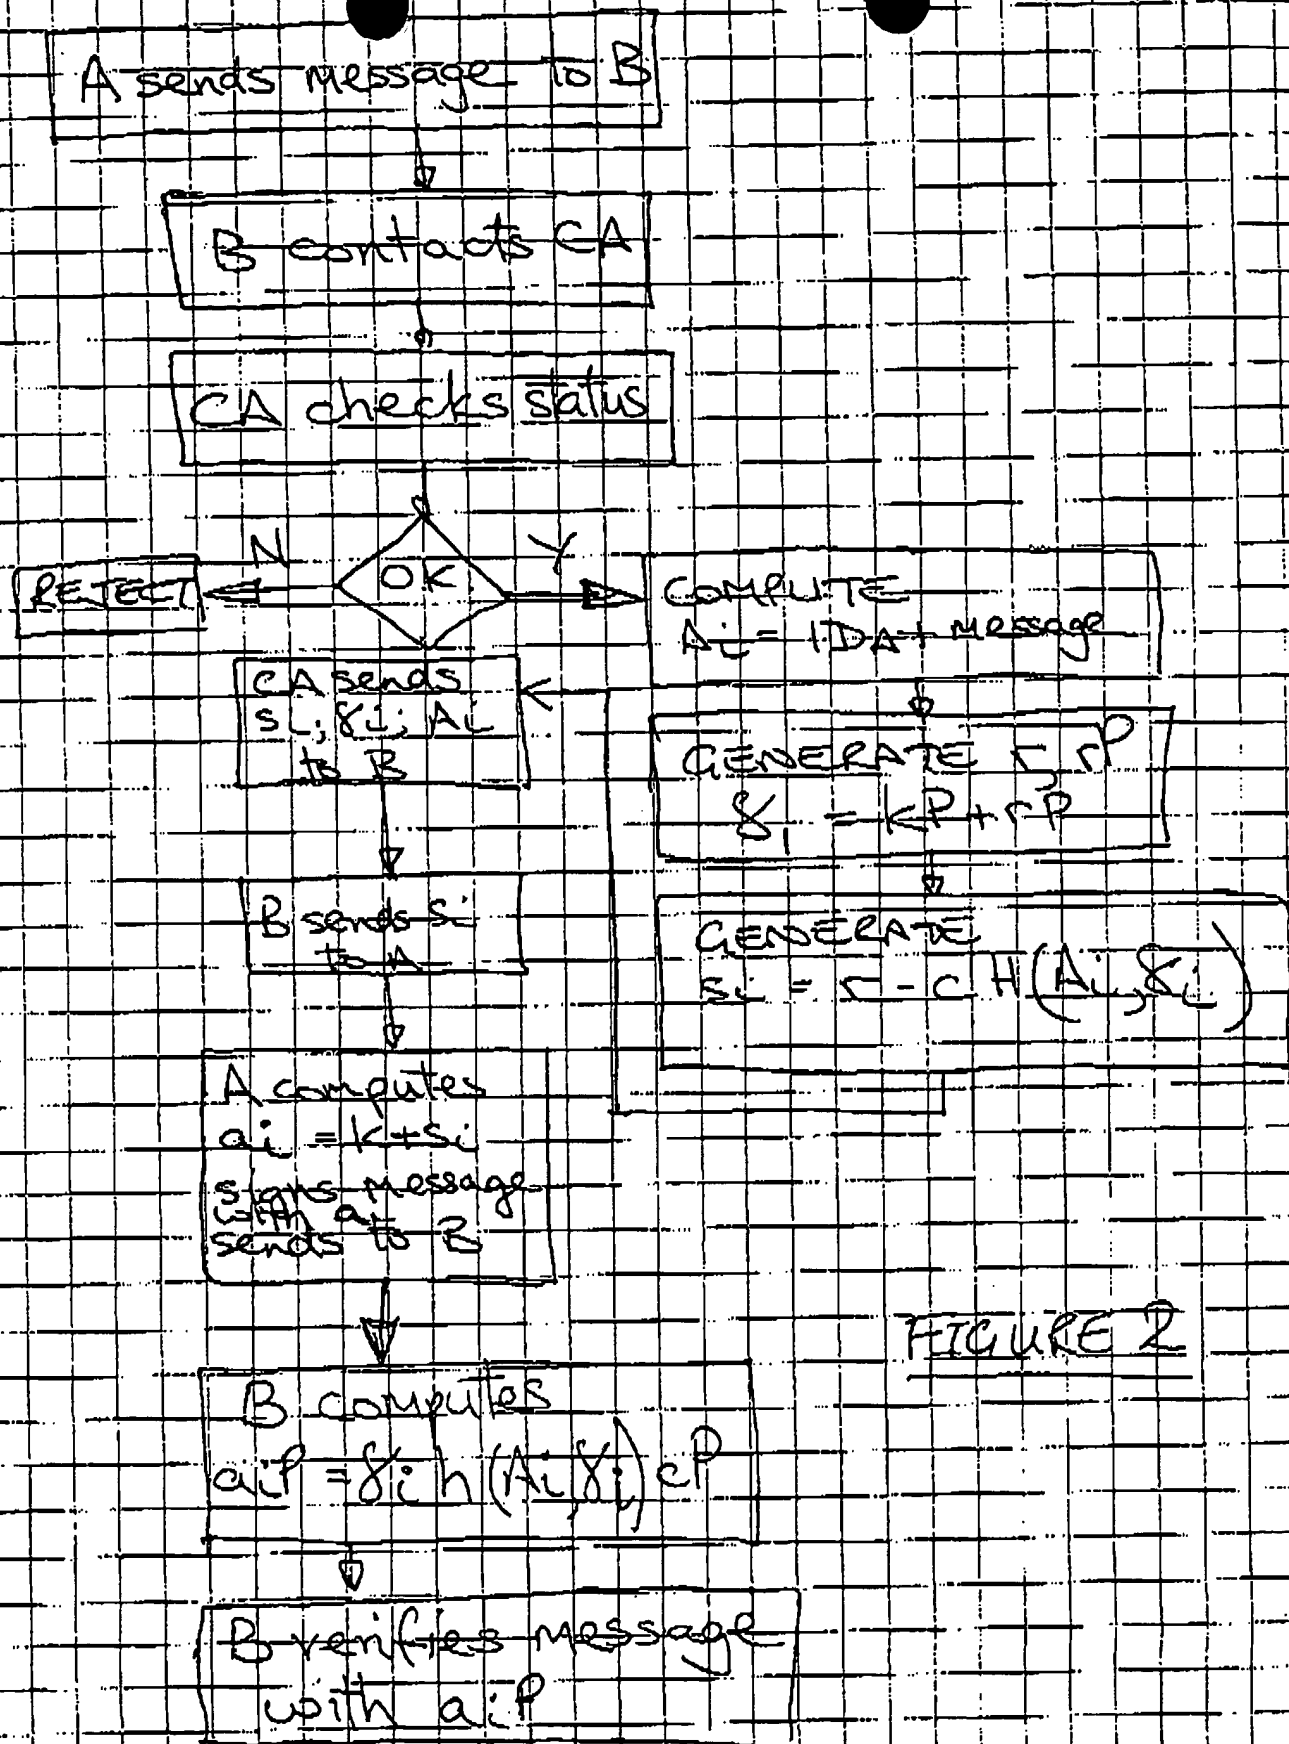 A sends message to B
B contacts CA
CA checks status
N
OK
Y
REJECT
COMPUTE
Ai = IDA + message
GENERATE r, rP
γi = kP + rP
GENERATE
si = r - c H(Ai, γi)
CA sends
si, γi, Ai
to B
B sends si
to A
A computes
ai = k + si
signs message
with a
sends to B
B computes
aiP = γi h (Ai, γi) cP
B verifies message
with aiP
FIGURE 2